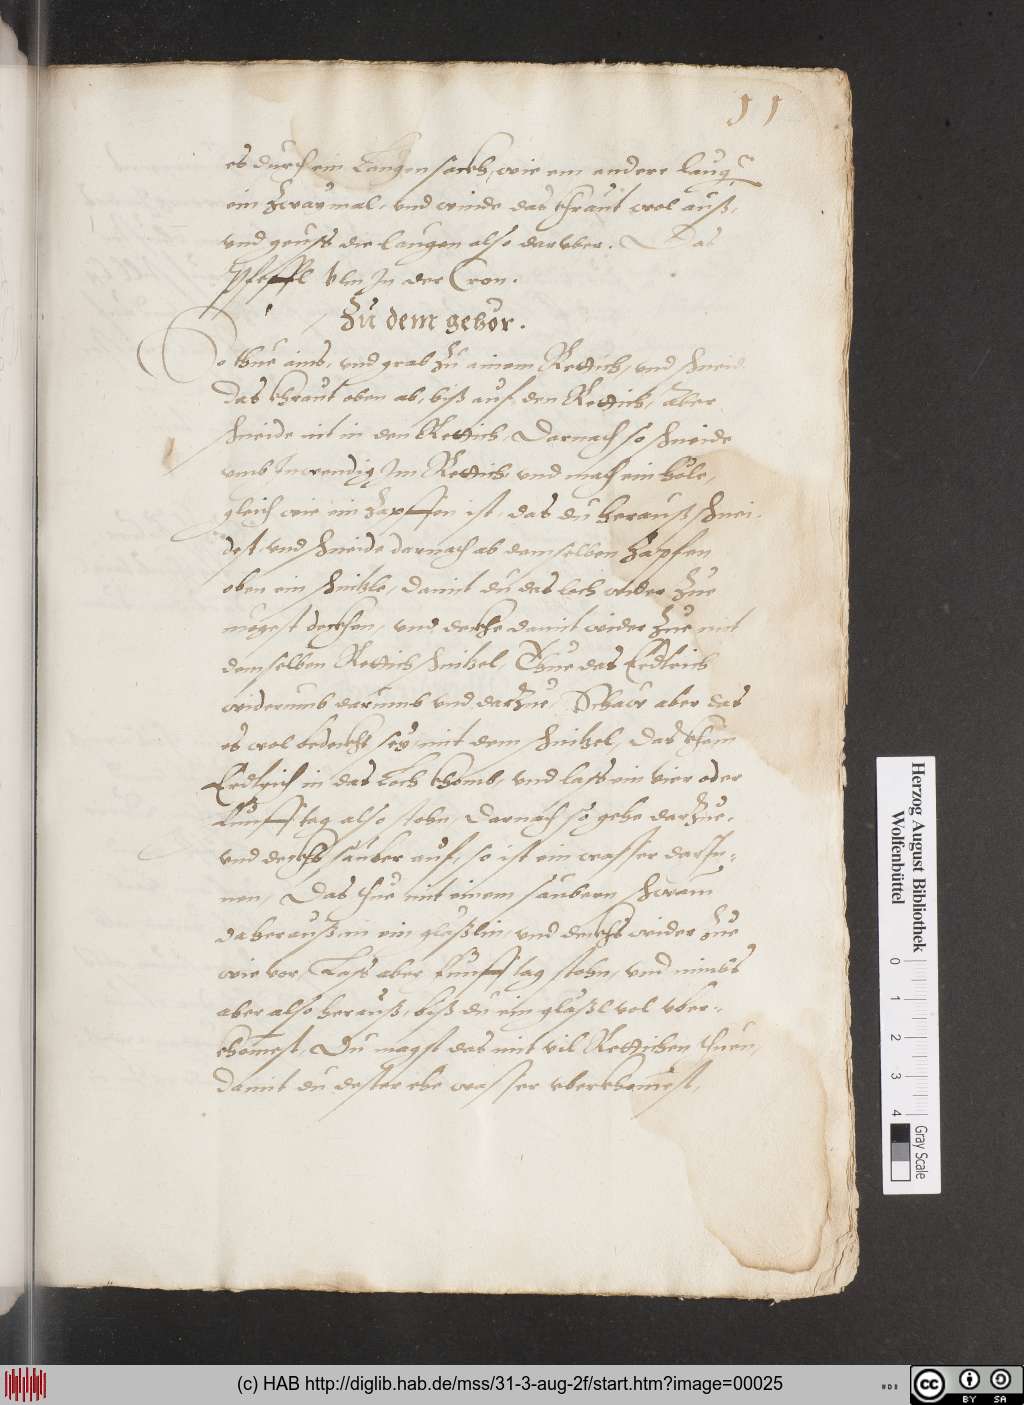 11
es durch ein Laugen sackh, wie ein andere laug,
ein Zwaymal, und winde das khraut wol auß,
und geuß die laugen also darüber. Das
Pfeffl Ulm Jn der Cron.
Zu dem gehör.
So thue ains, und grab zu ainem Rettich, und schneid
das khraut oben ab, biß auf den Rettich, Aber
schneide nit in den Rettich, Darnach so schneide
umb Inwendig Im Rettich und mach ein hüle,
gleich wie ein Zapffen ist, das du herauß schnei-
dest, und schneide darnach ab demselben Zapfen
oben ein schnitzle, damit du das loch wider zue
mügest deckhen, und deckhe damit wider Zue mit
demselben Rettich schnitzel, Thue das Erdtrich
widerumb darumb und darzue, Schaw aber das
es wol bedeckht sey, mit dem schnitzel, das khain
Erdtrich in das Loch khomb, und laß ein vier oder
Fünff tag also stehn, Darnach so gehe darzue,
und deckhs sauber auf, so ist ein wasser darIn-
nen, Das thue mit einem saubern schwam
daherauß, in ein gläßlin, und deckhs wider Zue
wie vor, Laß aber Fünff tag stehn, und nimbs
aber also herauß, biß du ein gläßl vol uber-
khomest, Du magst das mit vil Rettichen thuen,
damit du dester ehe wasser uberkhomest,
Herzog August Bibliothek
Wolfenbüttel
0 1 2 3 4
Gray Scale
(c) HAB http://diglib.hab.de/mss/31-3-aug-2f/start.htm?image=00025
cc BY SA